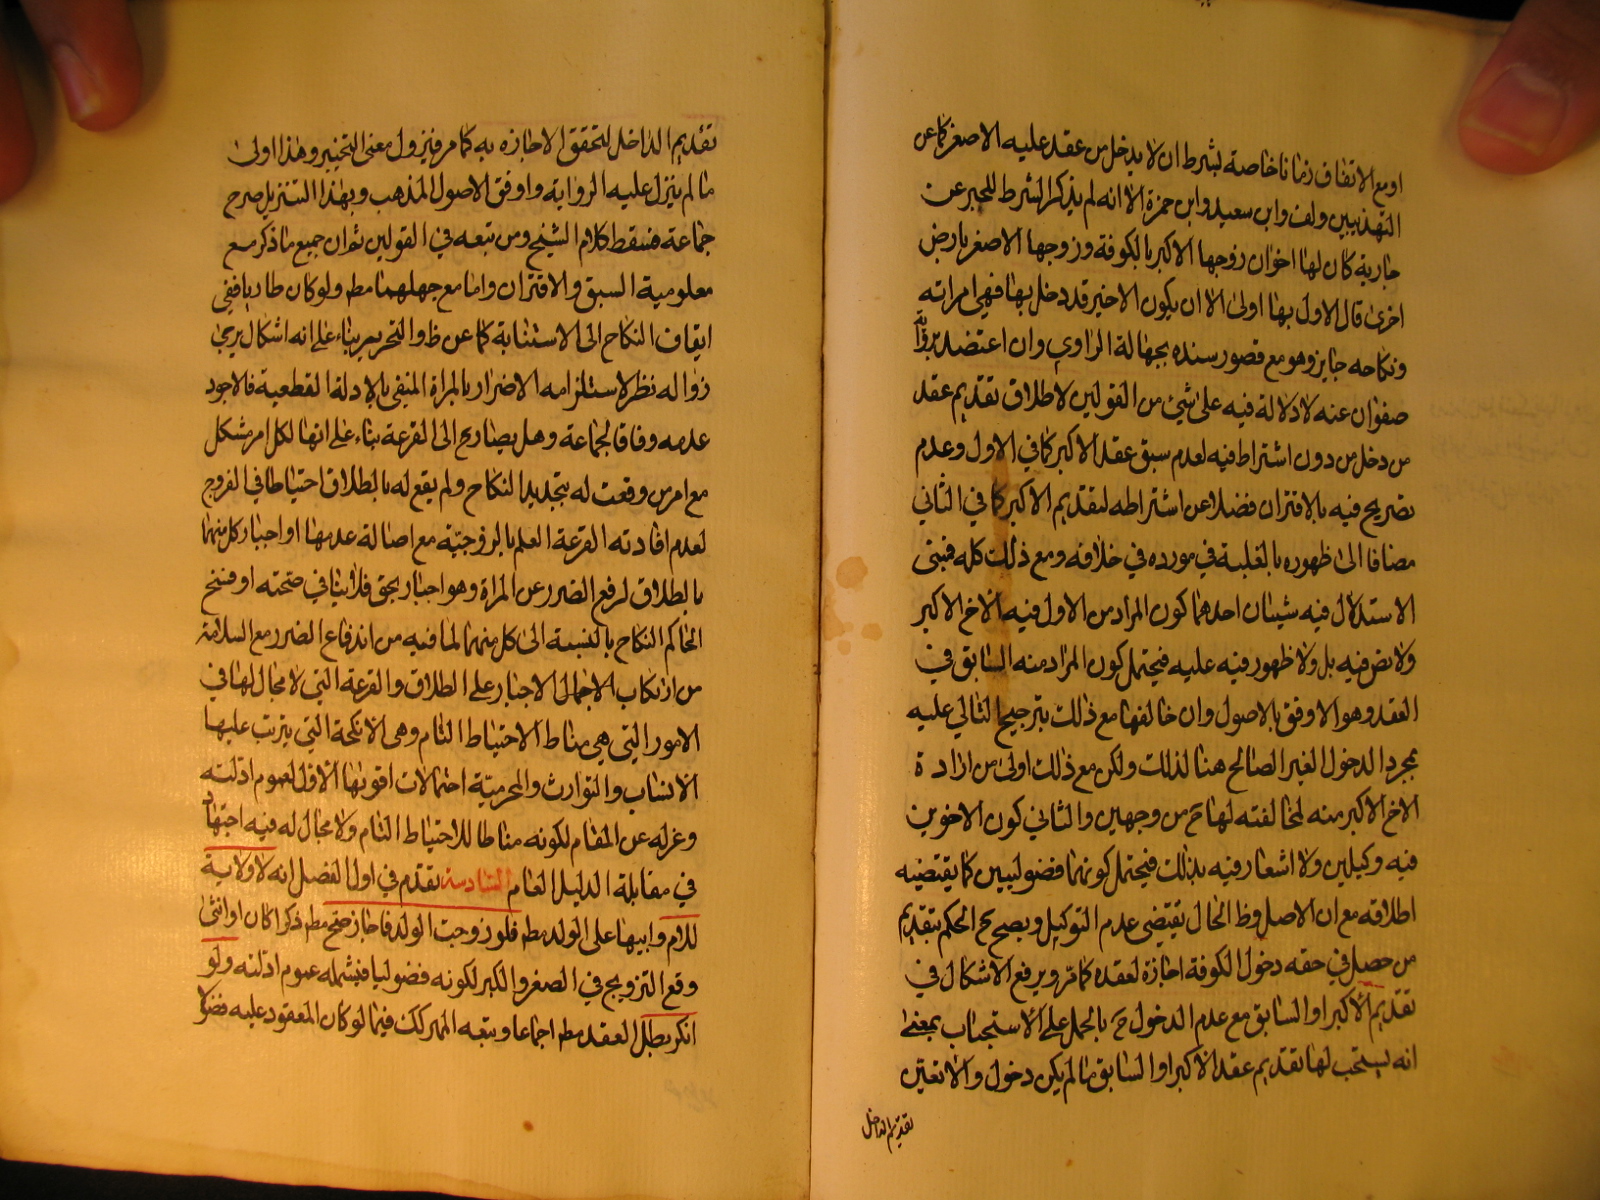 او مع الاتفاق زمانا خاصة بشرط ان لا يدخل من عقد عليه الاصغر كما عن
التهذيبين ولف وابن سعيد وابن حمزة الا انه لم يذكر الشرط للخبر عن
جارية كان لها اخوان زوجها الاكبر بالكوفة وزوجها الاصغر بارض
اخرى قال الاول بها اولى الا ان يكون الاخير قد دخل بها فهي امراته
ونكاحه جايز وهو مع قصور سنده بجهالة الراوي وان اعتضد برواية
صفوان عنه لا دلالة فيه على شئ من القولين لاطلاق تقديم عقد
من دخل من دون اشتراط فيه لعدم سبق عقد الاكبر كما في الاول وعدم
تصريح فيه بالاقتران فضلا عن اشتراطه لتقديم الاكبر كما في الثاني
مضافا الى ظهوره بالغلبة في مورده في خلافه ومع ذلك كله فمبنى
الاستدلال فيه شيئان احدهما كون المراد من الاول فيه الاخ الاكبر
ولا نص فيه بل ولا ظهور فيه عليه فيحتمل كون المراد منه السابق في
العقد وهو الاوفق بالاصول وان خالفها مع ذلك بترجيح التالي عليه
بمجرد الدخول الغير الصالح هنا لذلك ولكن مع ذلك اولى من ارادة
الاخ الاكبر منه لمخالفته لها ح من وجهين والثاني كون الاخوين
فيه وكيلين ولا اشعار فيه بذلك فيحتمل كونهما فضوليين كما يقتضيه
اطلاقه مع ان الاصل وظ الحال يقتضى عدم التوكيل ويصح ح الحكم بتقديم
من حصل في حقه دخول الكوفة اجازة لعقده كما مر ويرفع الاشكال في
تقديم الاكبر او السابق مع عدم الدخول ح بالحمل على الاستحباب بمعنى
انه يستحب لها تقديم عقد الاكبر او السابق ما لم يكن دخول والا تعين
تقديم الداخل
تقديم الداخل لتحقق الاجازه به كما مر فيزول معنى التخيير وهذا اولى
ما لم ينزل عليه الرواية واوفق الاصول المذهب وبهذا التنزيل صرح
جماعة فسقط كلام الشيخ ومن تبعه في القولين ثم ان جميع ما ذكر مع
معلومية السبق والاقتران واما مع جهلهما مط ولو كان طاريا ففي
ايقاف النكاح الى الاستنابة كما عن ظ والتحرير بناء على انه اشكال يرجى
زواله نظر لاستلزامه الاضرار بالمراة المنفى بالادلة القطعية فالاجود
عدمه وفاقا لجماعة وهل يصار ح الى القرعة بناء على انها لكل امر مشكل
مع امر من وقعت له بتجديد النكاح ولم يقع له بالطلاق احتياطا في الفروج
لعدم افادته القرعة العلم بالزوجيّة مع اصالة عدمها او اجبار كل منهما
بالطلاق لرفع الضرر عن المراة وهو اجبار بحق فلا ينافي صحته او فسخ
الحاكم النكاح بالنسبة الى كل منهما لما فيه من اندفاع الضرر مع السلامة
من ارتكاب الاجبار على الطلاق والقرعة التي لا مجال لها في
الامور التي هي مناط الاحتياط التام وهى الانكحة التي يترتب عليها
الانساب والتوارث والمحرميّة احتمالات اقويها الاول لعموم ادلته
وعزله عن المقام لكونه مناطا للاحتياط التام ولا مجال له فيه اجتهاد
في مقابلة الدليل العام السادسة تقدّم في اول الفصل انه لا ولاية
للام وابيها على الولد مط فلو زوجت الولد فاجاز صح مط ذكرا كان او انثى
وقع التزويج في الصغر والكبر لكونه فضوليا فيشمله عموم ادلته ولو
انكر بطل العقد مط اجماعا ويتبعه المهر لكن فيما لو كان المعقود عليه فضولا